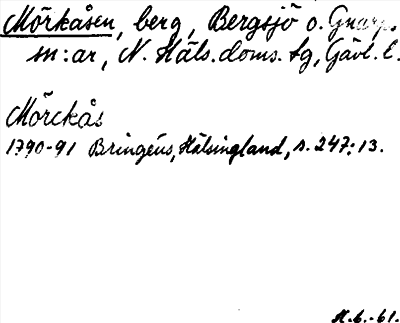 Mörkåsen, berg, Bergsjö o. Gnarps
sn:ar, N. Häls. doms. tg, Gävl. l.
Mörckås
1790-91 Bringéus, Hälsingland, s. 247:13.
H.b.-61.